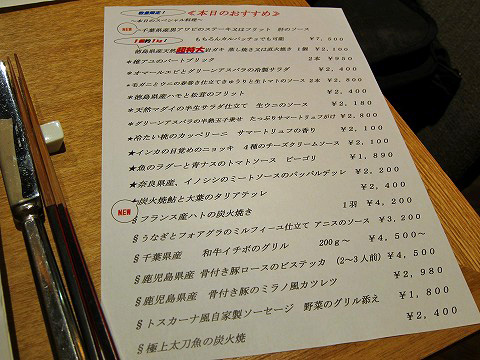 数量限定!
≪本日のおすすめ≫
~本日のスペシャル料理~
NEW
~千葉県産黒アワビのステーキ又はフリット 肝のソース
1個約1kg! もちろんカルパッチョでも可能 ¥7,500
徳島県産天然超特大岩ガキ 蒸し焼き又は炭火焼き 1個 ¥2,100
*穂アユのパートブリック 2本 ¥950
*オマールエビとグリーンアスパラの冷製サラダ ¥2,400
*毛ガニとウニの春巻き仕立てきゅうりと生トマトのソース 2本 ¥2,800
*徳島県産ハモと松茸のフリット ¥2,400
*天然マダイの半生サラダ仕立て 生ウニのソース ¥2,180
*グリーンアスパラの半熟玉子乗せ たっぷりサマートリュフがけ ¥2,800
★冷たい桃のカッペリーニ サマートリュフの香り ¥2,100
★インカの目覚めのニョッキ 4種のチーズクリームソース ¥2,100
★魚のラグーと青ナスのトマトソース ビーゴリ ¥1,890
★奈良県産、イノシシのミートソースのパッパルデッレ ¥2,200
★炭火焼鮎と大葉のタリアテッレ ¥2,400
NEW
§フランス産ハトの炭火焼き 1羽 ¥4,200
§うなぎとフォアグラのミルフィーユ仕立て アニスのソース ¥3,200
§千葉県産 和牛イチボのグリル 200g~ ¥4,500~
§鹿児島県産 骨付き豚ロースのビステッカ (2~3人前) ¥4,500
§鹿児島県産 骨付き豚のミラノ風カツレツ ¥2,980
§トスカーナ風自家製ソーセージ 野菜のグリル添え ¥1,800
§極上太刀魚の炭火焼 ¥2,400